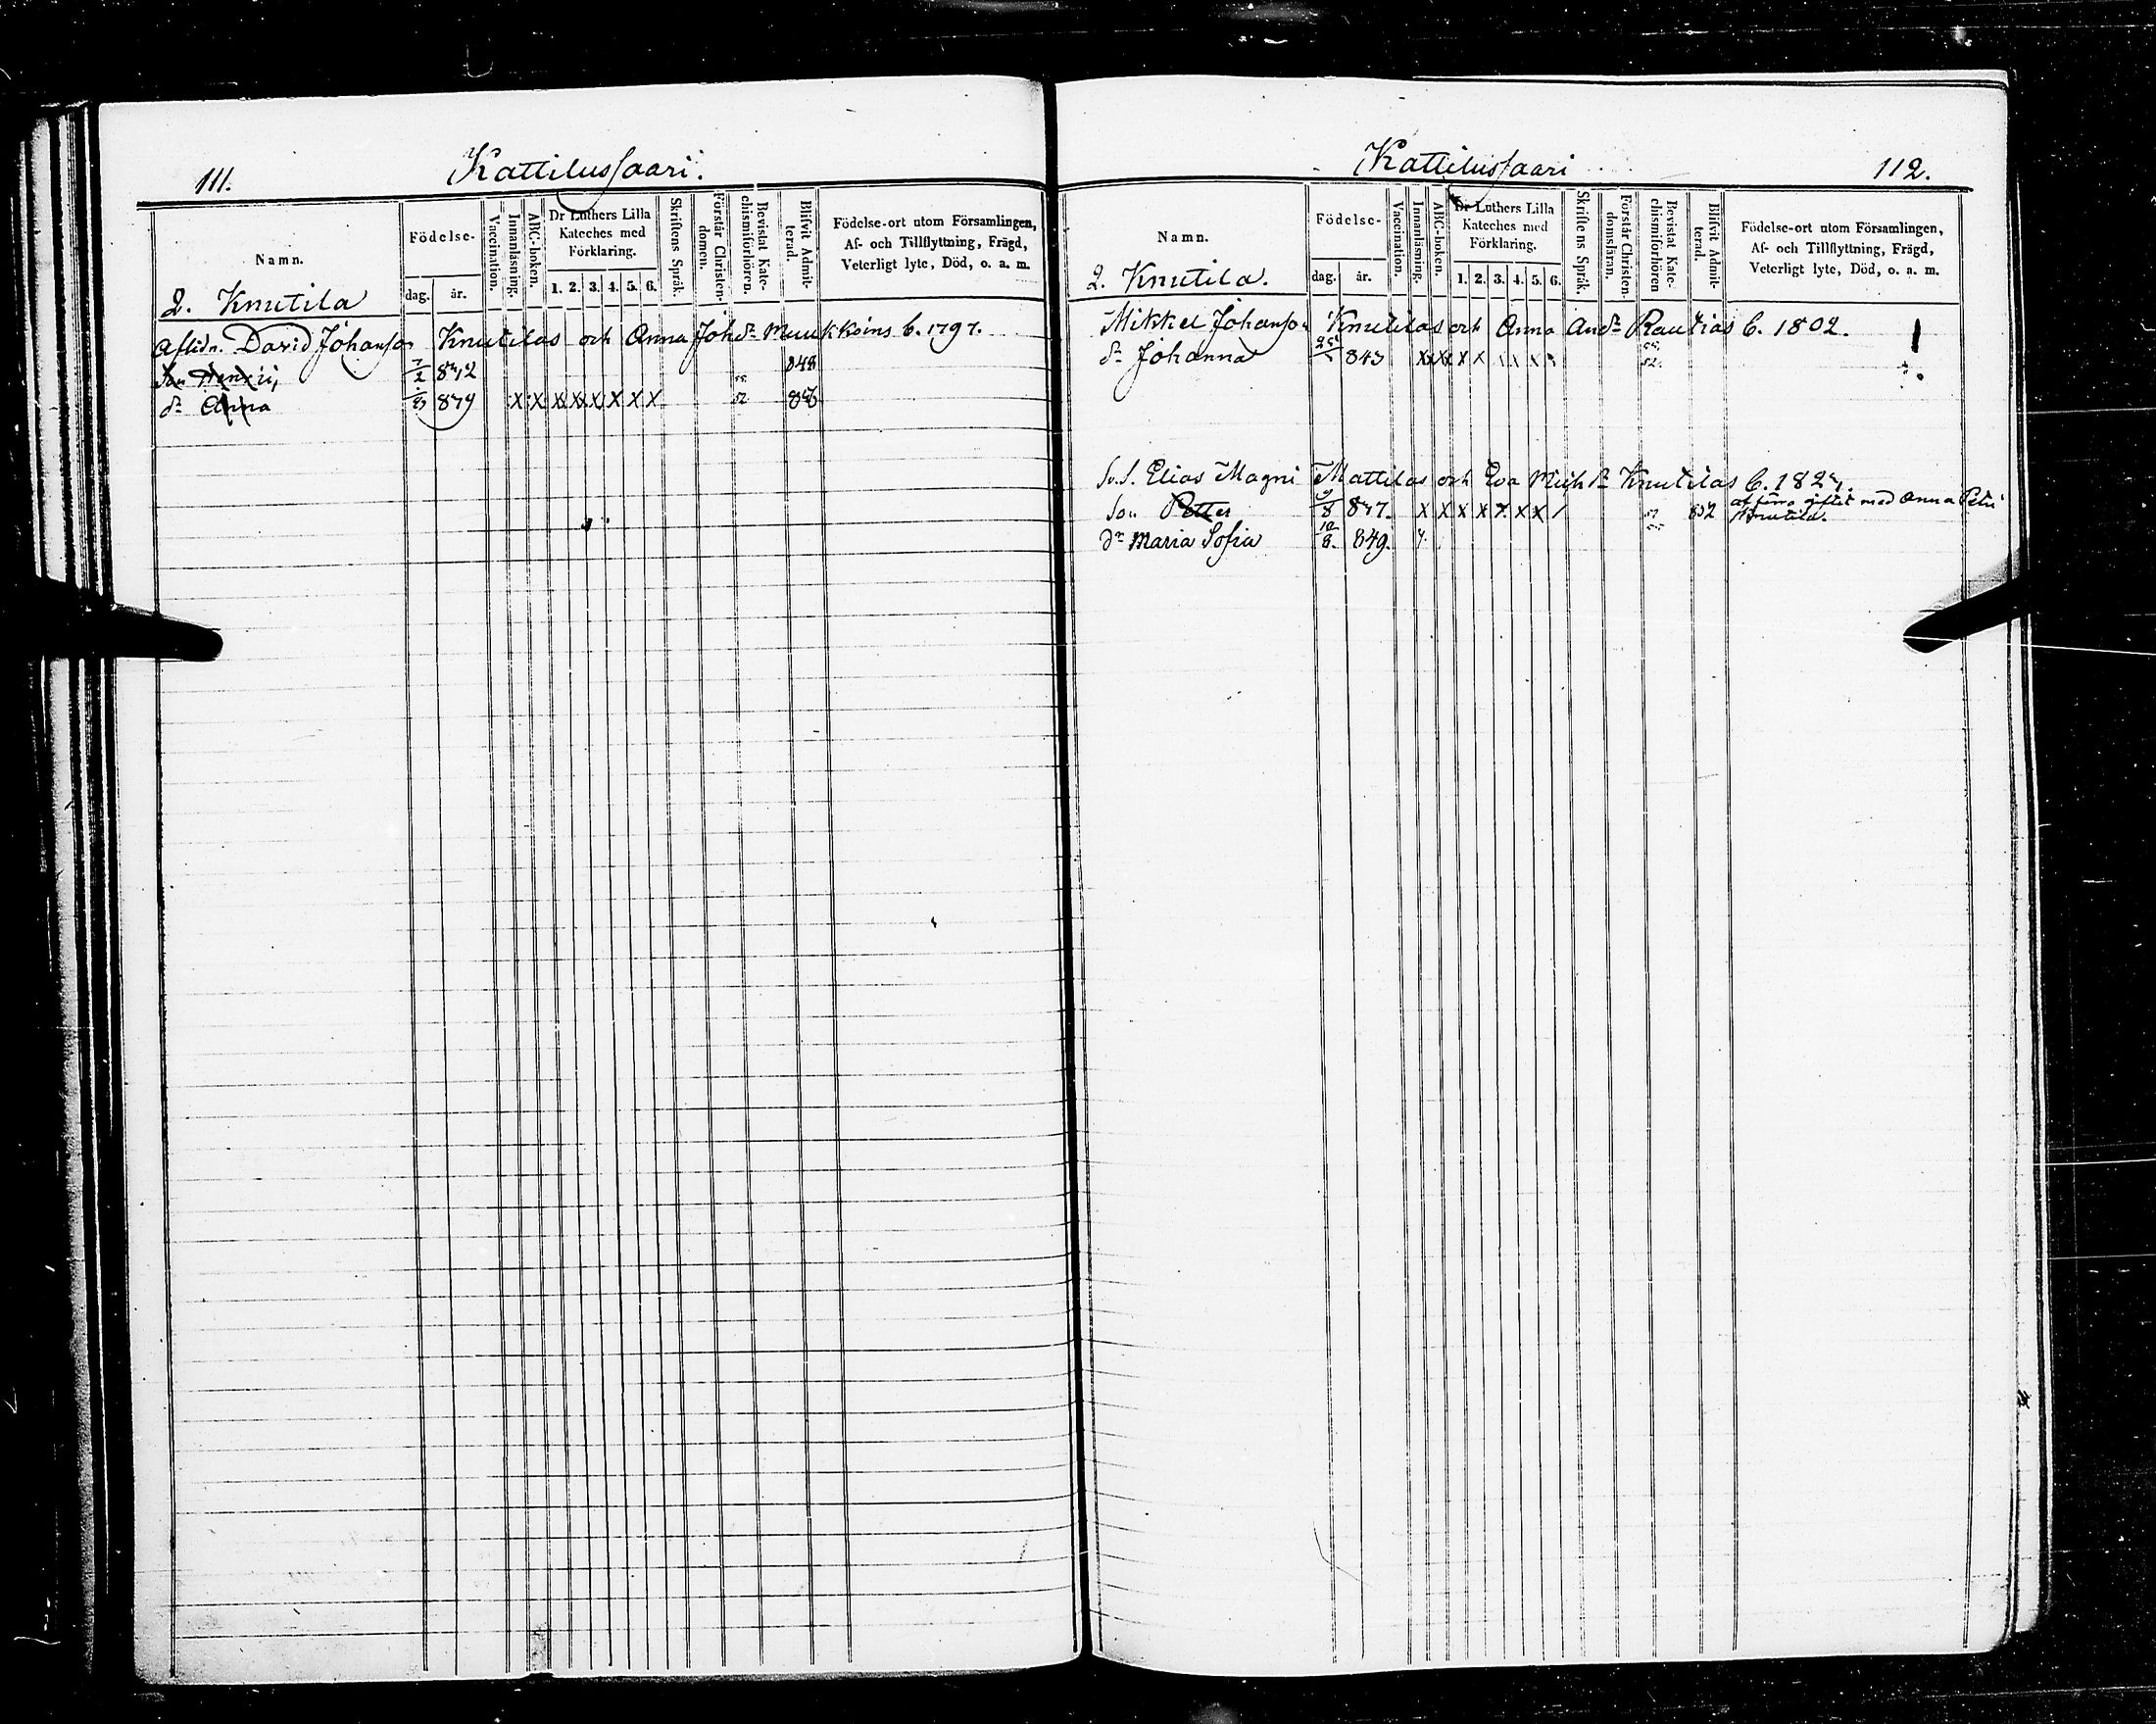 111.
Kattilussaari.
Namn.
Födelse-
dag. år.
Vaccination.
Innanläsning.
ABC-boken.
Dr Luthers Lilla Kateches med Förklaring.
1. 2. 3. 4. 5. 6.
Skriftens Språk.
Förstår Christen-domen.
Bevistat Kate-chismiförhören.
Blifvit Admit-terad.
Födelse-ort utom Församlingen,
Af- och Tillflyttning, Frägd,
Veterligt lyte, Död, o. a. m.
2. Knutila
Aflidn. David Johansson Knutilas och Anna Johdr Munkkoins C. 1797.
Son Henric 7/2 848
dr Anna X X X X X X X X 52
Kattilussaari
112.
Namn.
Födelse-
dag. år.
Vaccination.
Innanläsning.
ABC-boken.
Dr Luthers Lilla Kateches med Förklaring.
1. 2. 3. 4. 5. 6.
Skriftens Språk.
Förstår Christen-domsläran.
Bevistat Kate-chismiförhören
Blifvit Admit-terad.
Födelse-ort utom Församlingen,
Af- och Tillflyttning, Frägd,
Veterligt lyte, Död, o. a. m.
2. Knutila.
Mikkel Johansson Knutilas och Anna Andr Rautias C. 1802.
dr Johanna 25 843 X X X X X X X X 52.
Sv.S. Elias Magni Mattilas och Eva Mich dr Knutilas C. 1827.
Son Petter 9/8 837. X X X X X X X / 852 giftet med Anna Petri Knutila.
dr Maria Sofia 10/8. 849.